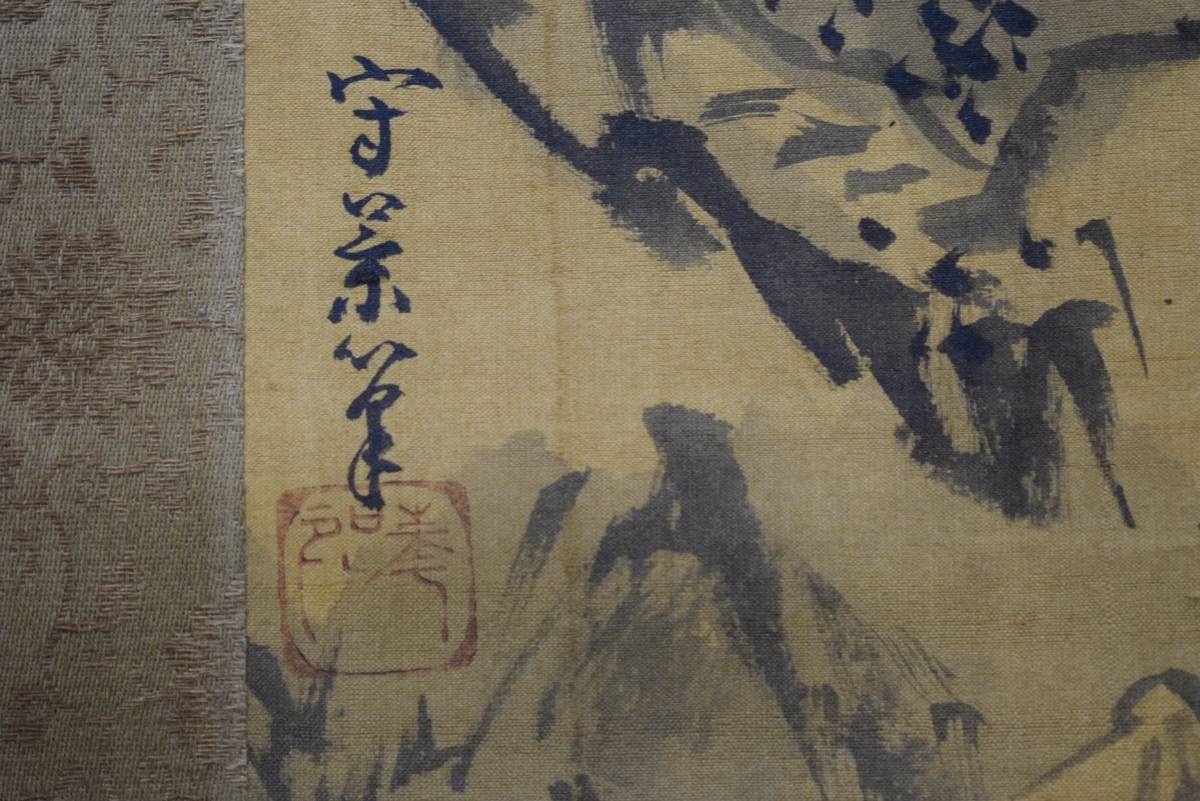 守景筆